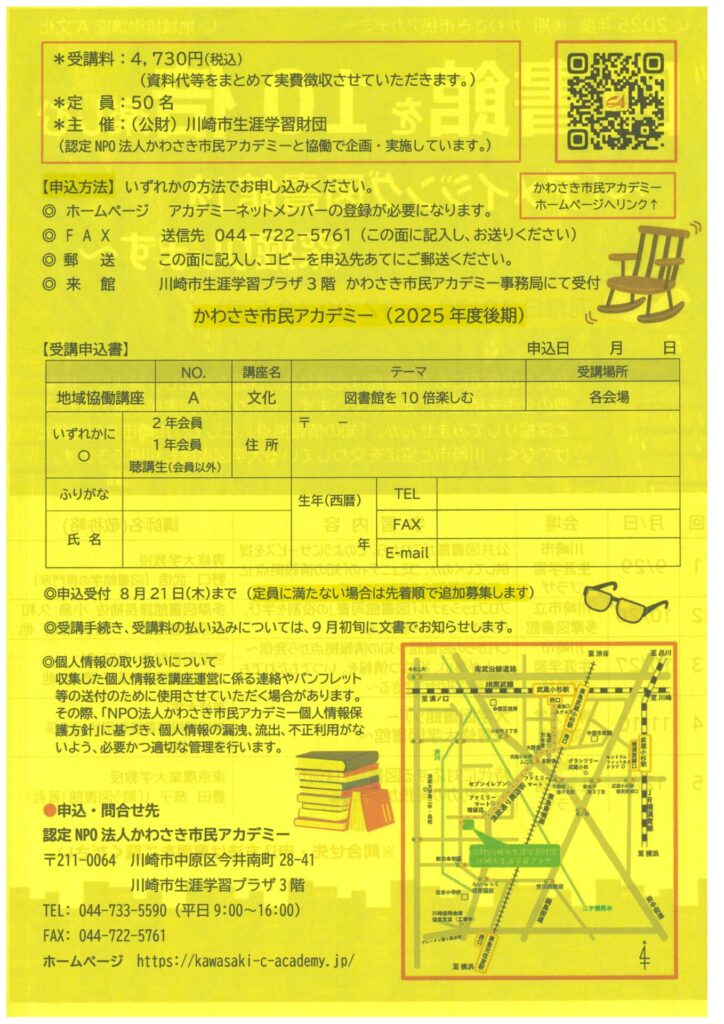 ＊受講料：4,730円(税込)
（資料代等をまとめて実費徴収させていただきます。）
＊定　員：50名
＊主　催：（公財）川崎市生涯学習財団
（認定NPO法人かわさき市民アカデミーと協働で企画・実施しています。）
かわさき市民アカデミー
ホームページへリンク↑
【申込方法】いずれかの方法でお申し込みください。
◎ ホームページ　アカデミーネットメンバーの登録が必要になります。
◎ ＦＡＸ　送信先 044-722-5761（この面に記入し、お送りください）
◎ 郵　送　この面に記入し、コピーを申込先あてにご郵送ください。
◎ 来　館　川崎市生涯学習プラザ3階 かわさき市民アカデミー事務局にて受付
かわさき市民アカデミー（2025年度後期）
【受講申込書】　申込日　月　日
NO.　講座名　テーマ　受講場所
地域協働講座　A　文化　図書館を10倍楽しむ　各会場
いずれかに○
2年会員
1年会員
聴講生(会員以外)
住 所
〒　－
ふりがな
氏 名
生年(西暦)
年
TEL
FAX
E-mail
◎申込受付 8月21日(木)まで （定員に満たない場合は先着順で追加募集します）
◎受講手続き、受講料の払い込みについては、9月初旬に文書でお知らせします。
◎個人情報の取り扱いについて
収集した個人情報を講座運営に係る連絡やパンフレット
等の送付のために使用させていただく場合があります。
その際、「NPO法人かわさき市民アカデミー個人情報保
護方針」に基づき、個人情報の漏洩、流出、不正利用がな
いよう、必要かつ適切な管理を行います。
●申込・問合せ先
認定NPO法人かわさき市民アカデミー
〒211-0064　川崎市中原区今井南町28-41
川崎市生涯学習プラザ3階
TEL: 044-733-5590（平日9:00～16:00）
FAX: 044-722-5761
ホームページ　https://kawasaki-c-academy.jp/
至 渋谷
至 品川
南武沿線道路
JR南武線
至 溝ノ口
武蔵小杉駅
至 川崎
中原区役所
中原市民館
武蔵小杉駅
グランツリー
武蔵小杉
セブンイレブン
ファミリーマート
ファミリーマート
JR横須賀線
至 横浜
らいらっく保育園
住吉小学校
二ケ領用水
至 横浜